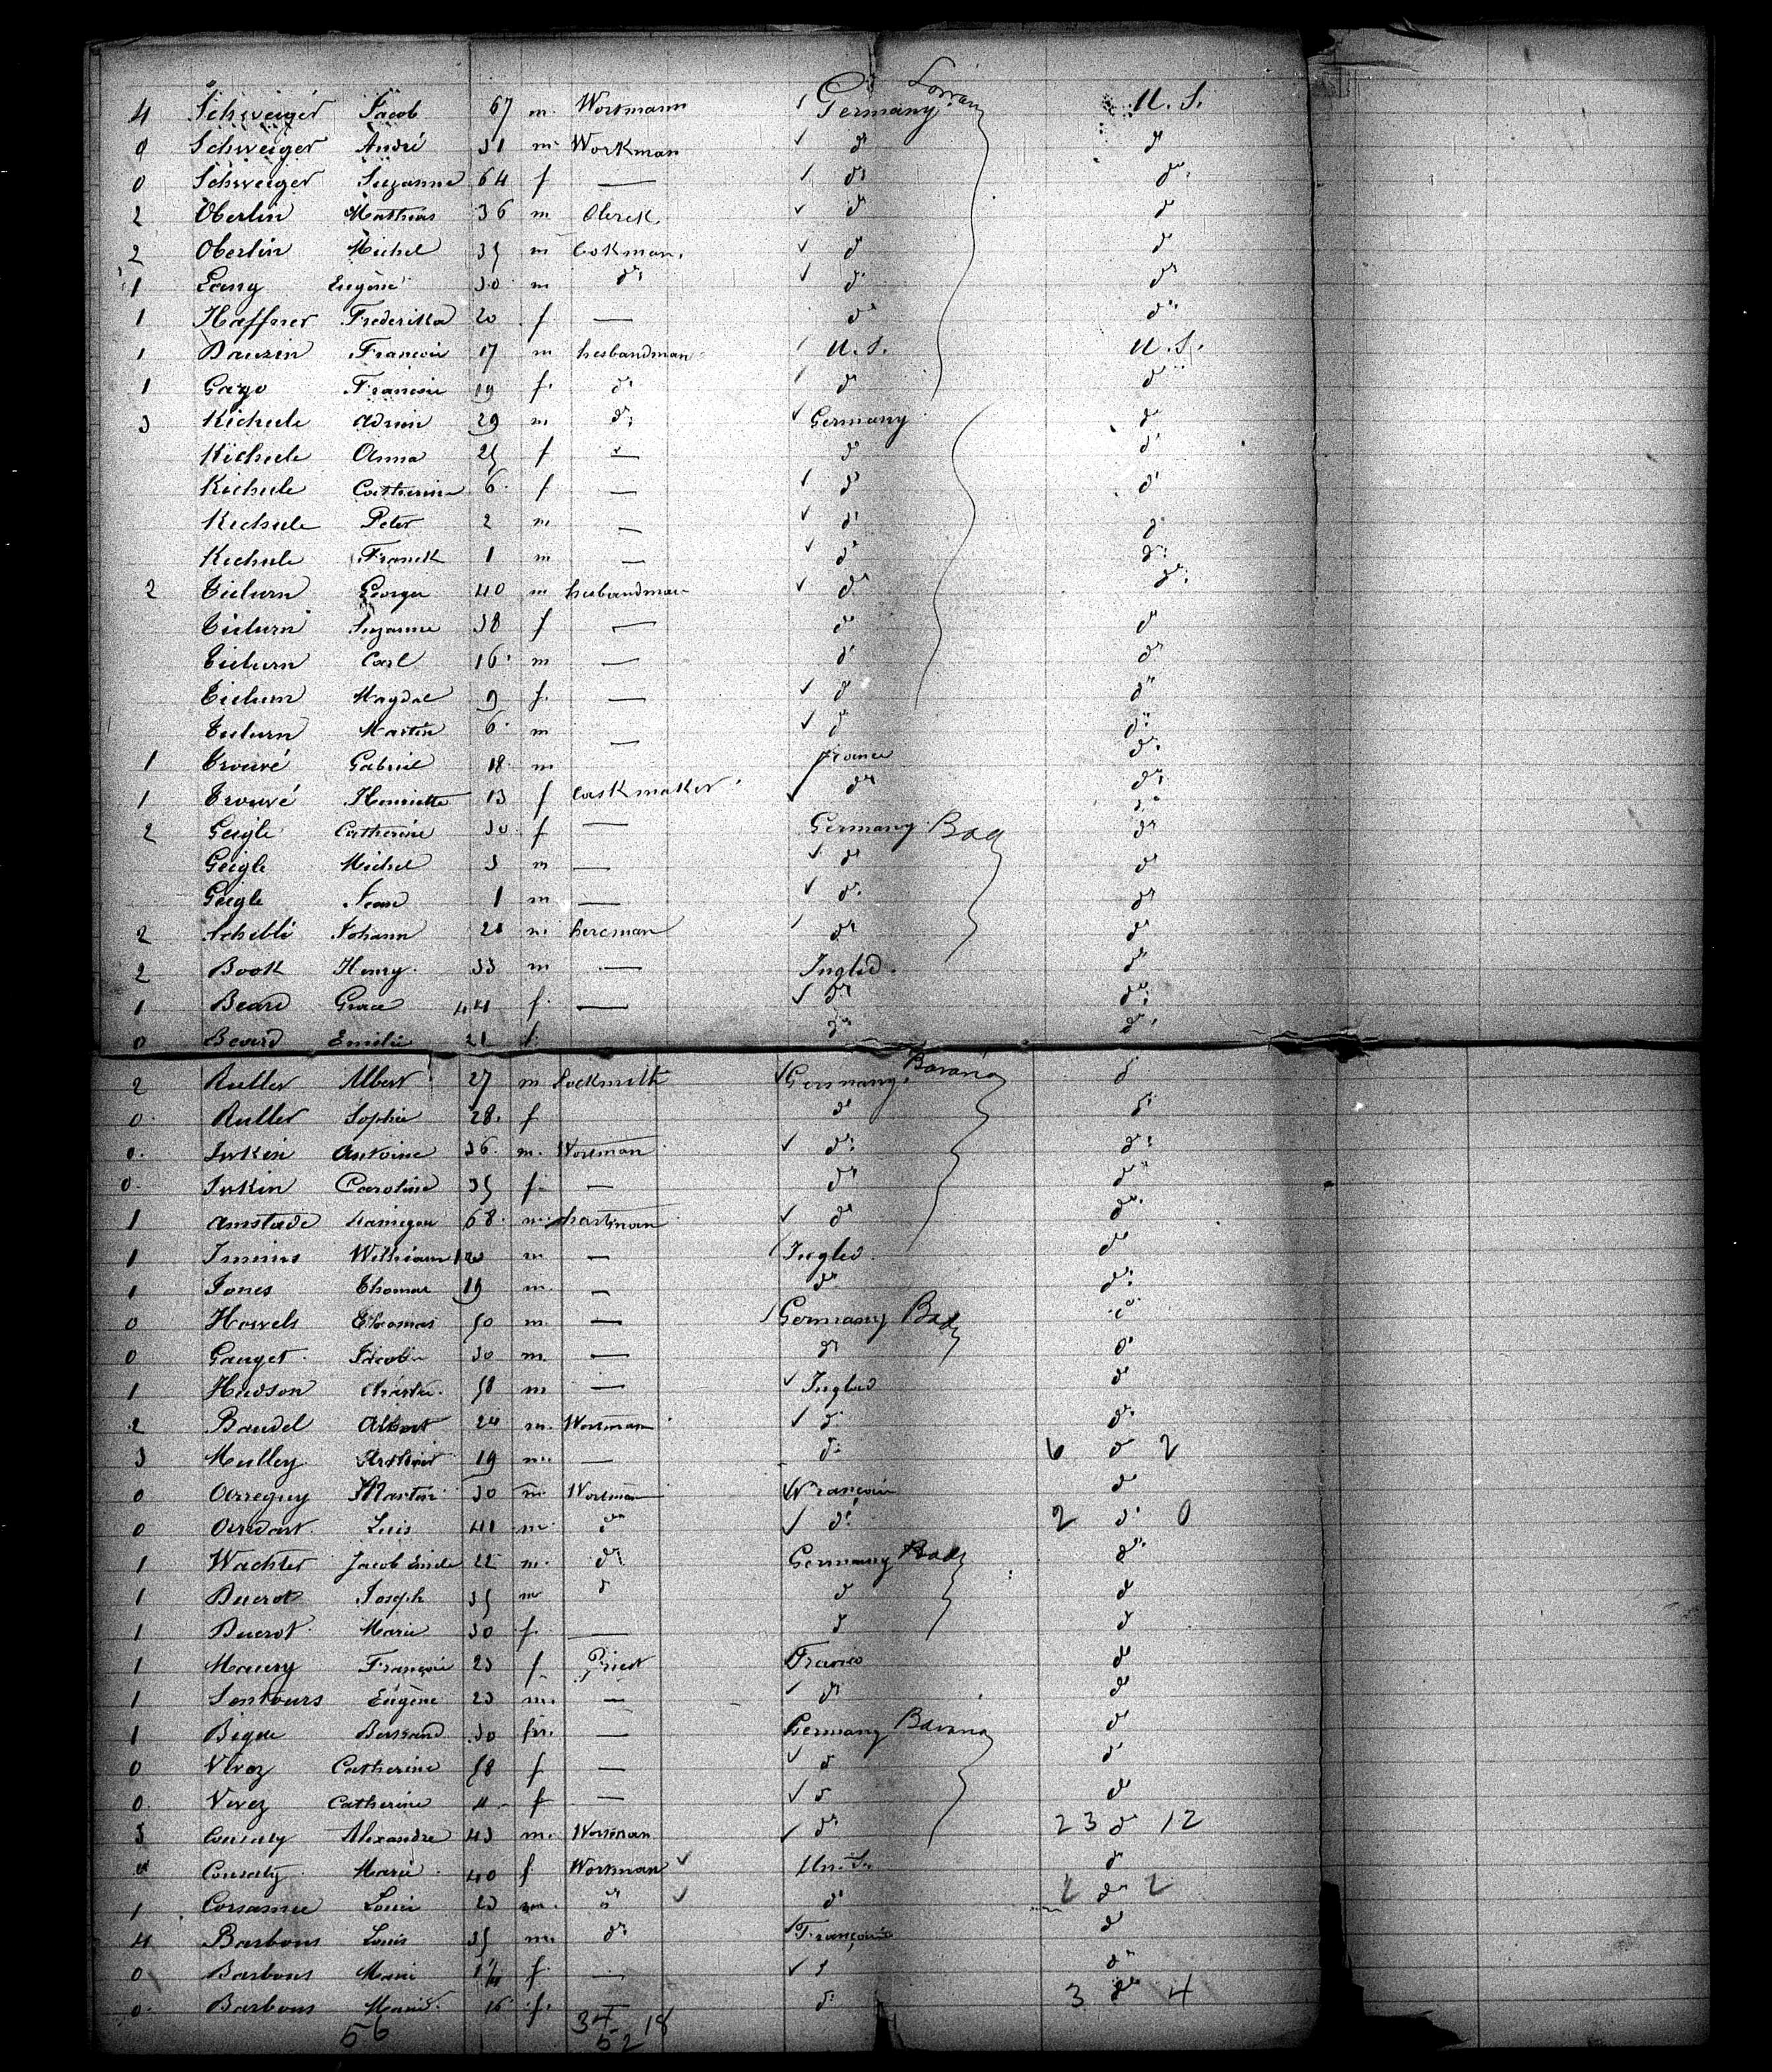 4 Schweiger Jacob 67 m. Wortmann Germany Lorrain U. S.
0 Schweiger André 31 m. Workman do do
0 Schweiger Suzanne 64 f — do do
2 Oberlin Mathias 36 m Clerck do do
2 Oberlin Michel 35 m Cokman. do do
1 Lang Eugène 30 m do do do
1 Haffner Frederika 20 f. — do do
1 Dauzin François 17 m hesbandman U. S. U. S.
1 Gazo 19 f. do do do
3 Kichule Adrien 29 m do Germany do
Kichule Anna 25 f — do do
Kichule Catherine 6 f — do do
Kichule Peter 2 m — do do
Kichule Franck 1 m — do do
2 George 40 m hesbandman do do
Suzanne 38 f — do do
Carl 16 m — do do
Magdal 9 f. — do do
Martin 6 m — do do
1 Trouvé Gabriel 18 m France do
1 Trouvé Henriette 13 f Caskmaker do do
2 Geigle Catherine 30 f — Germany Bad do
Geigle Michel 3 m — do do
Geigle Jean 1 m — do do
2 Schebli Johann 21 m. do do
2 Book Henry 33 m — Inglid. do
1 Beard Grace 44 f. — do do
0 Beard Emilie 21 f. do do
2 Ruller Albert 27 m Locksmith Germany. Bavaria do
0 Ruller Sophie 28 f do do
0 Antoine 36 m. Wortman do do
0 Caroline 35 f. — do do
1 Amstade 68 m. do do
1 William m — Inglid. do
1 Jones Thomas 19 m. — do do
0 Howels Thomas 50 m. — Germany Bad do
0 Gauget Jacob 30 m. — do do
1 Hudson 58 m — Inglid do
2 Baudel Albert 24 m. Wortman do do
3 Mulley Arthur 19 m. — do 6 do 2
0 Arreguy Martin 30 m. Wortman François do
0 Luis 41 m. do do 2 do 0
1 Wachter Jacob Emile 22 m. do Germany Bad do
1 Ducrot Joseph 35 m do do do
1 Ducrot Marie 30 f. — do do
1 Maury François 23 f Priest France do
1 Sentours Eugène 23 m. — do do
1 Bigue Bertrand 30 m. — Germany Bavaria do
0 Vivez Catherine 58 f — do do
0 Vivez Catherine 11 f — do do
3 Alexandre 43 m. Wortman do 23 do 12
Marie 40 f. Wortman Un. S. do
1 Louis 23 m. do do 2 do 2
4 Barbous Louis 35 m. do François do
0 Barbous Marie f. — do do
0 Barbous Marie 16 f. do 3 do 4
56 34 18
52